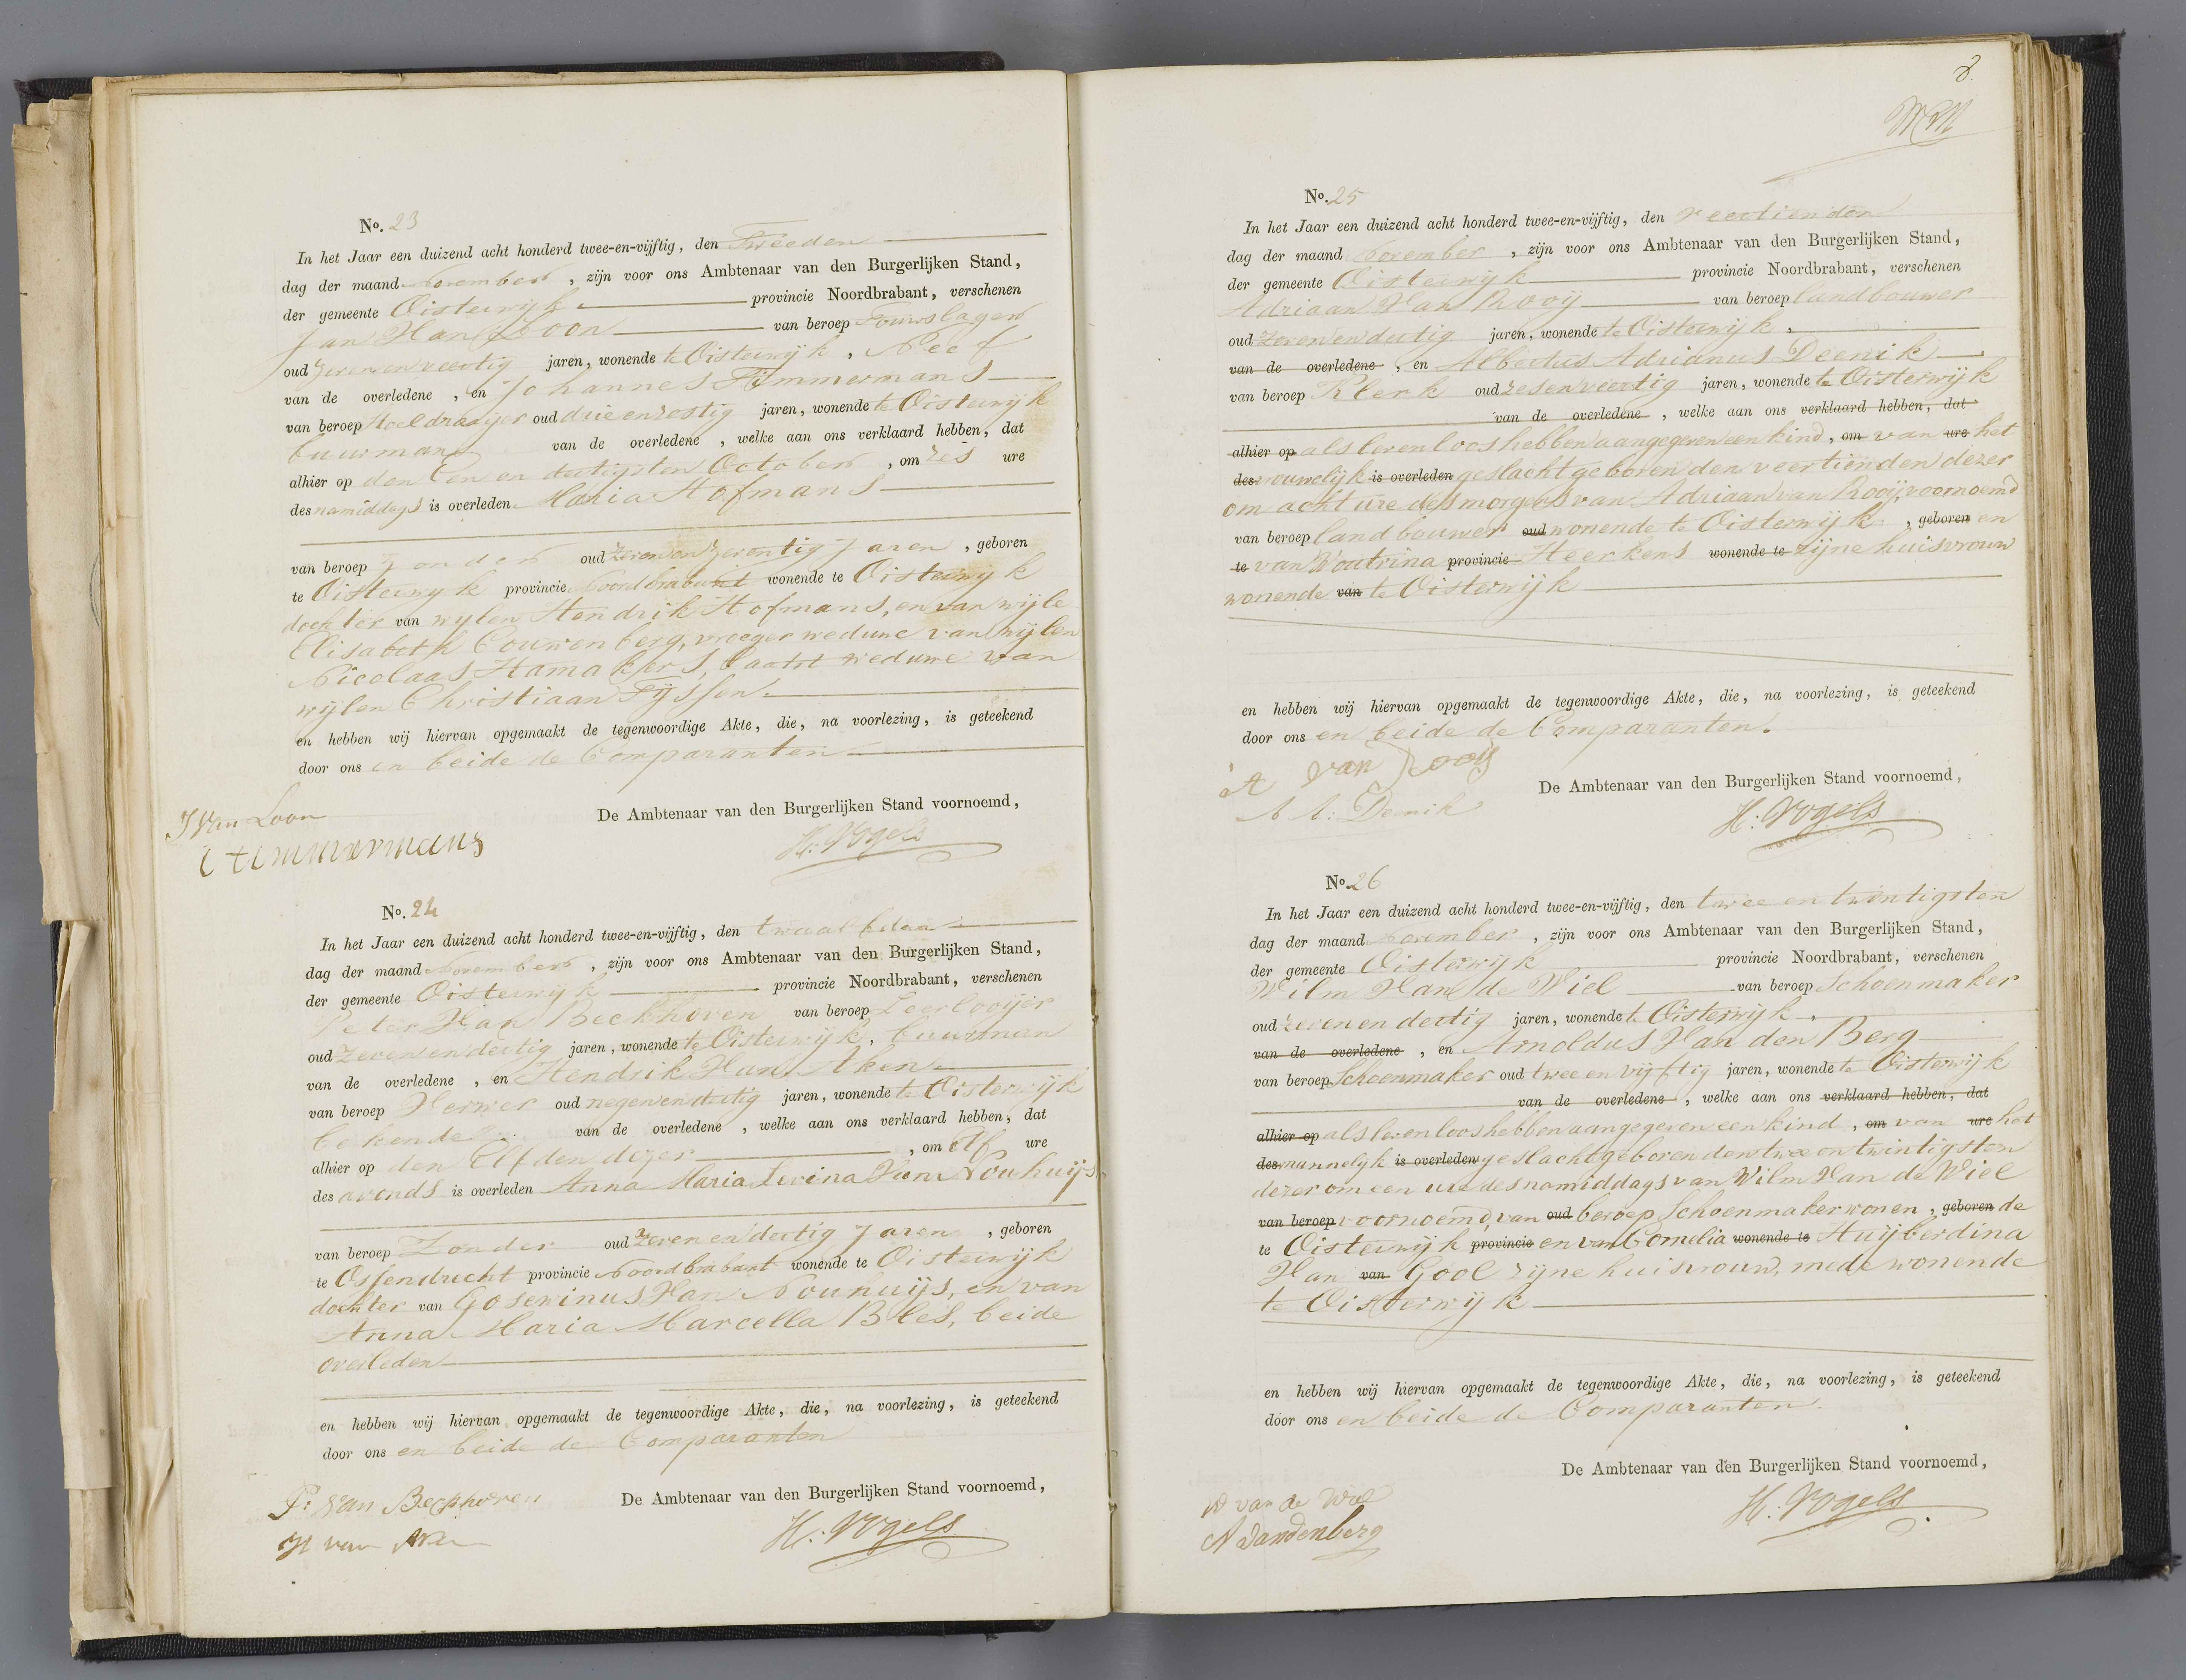 No. 23
In het Jaar een duizend acht honderd twee-en-vijftig, den Tweeden
dag der maand November, zijn voor ons Ambtenaar van den Burgerlijken Stand,
der gemeente Oisterwijk provincie Noordbrabant, verschenen
Jan Van Loon van beroep Touwslager
oud zevenenveertig jaren, wonende te Oisterwijk, Neef
van de overledene, en Johannes Timmermans
van beroep Stoeldraayer oud drieenzestig jaren, wonende te Oisterwijk
buurman van de overledene, welke aan ons verklaard hebben, dat
alhier op den Een en dertigsten October, om zes ure
des namiddags is overleden Maria Hofmans
van beroep Zonder oud zevenenzeventig Jaren, geboren
te Oisterwijk provincie Noordbrabant wonende te Oisterwijk
dochter van wylen Hendrik Hofmans, en van wijle
Elisabeth Couwenberg, vroeger weduwe van wijlen
Nicolaas Hamakers, laatst weduwe van
wijlen Christiaan Tijssen.
en hebben wij hiervan opgemaakt de tegenwoordige Akte, die, na voorlezing, is geteekend
door ons en beide de Comparanten
De Ambtenaar van den Burgerlijken Stand voornoemd,
J Van Loon
timmermans
H: Vogels
No. 24
In het Jaar een duizend acht honderd twee-en-vijftig, den twaalfden
dag der maand November, zijn voor ons Ambtenaar van den Burgerlijken Stand,
der gemeente Oisterwijk provincie Noordbrabant, verschenen
Peter Van Beckhoven van beroep Leerlooijer
oud zevenendertig jaren, wonende te Oisterwijk, buurman
van de overledene, en Hendrik Van Aken
van beroep Verwer oud negenendertig jaren, wonende te Oisterwijk
bekende van de overledene, welke aan ons verklaard hebben, dat
alhier op den Elfden dezer, om Elf ure
des avonds is overleden Anna Maria Levina Van Nouhuijs
van beroep Zonder oud zevenendertig Jaren, geboren
te Ossendrecht provincie Noordbrabant wonende te Oisterwijk
dochter van Gosewinus Van Nouhuijs, en van
Anna Maria Marcella Bles, beide
overleden
en hebben wij hiervan opgemaakt de tegenwoordige Akte, die, na voorlezing, is geteekend
door ons en beide de Comparanten
De Ambtenaar van den Burgerlijken Stand voornoemd,
P: van Beckhoven
H van Aken
H: Vogels
No. 25
In het Jaar een duizend acht honderd twee-en-vijftig, den veertienden
dag der maand November, zijn voor ons Ambtenaar van den Burgerlijken Stand,
der gemeente Oisterwijk provincie Noordbrabant, verschenen
Adriaan Van Rooij van beroep landbouwer
oud zevenendertig jaren, wonende te Oisterwijk,
van de overledene, en Albertus Adrianus Deenik
van beroep Klerk oud zesenveertig jaren, wonende te Oisterwijk
van de overledene, welke aan ons verklaard hebben, dat
alhier op als levenloos hebben aangegeven een kind, om van ure het
des vrouwelijk is overleden geslacht geboren den veertienden dezer
om acht ure des morgens van Adriaan van Rooij, voornoemd
van beroep landbouwer oud wonende te Oisterwijk, geboren en
te van Woutrina provincie Heerkens wonende te zijne huisvrouw
wonende van te Oisterwijk
en hebben wij hiervan opgemaakt de tegenwoordige Akte, die, na voorlezing, is geteekend
door ons en beide de Comparanten.
De Ambtenaar van den Burgerlijken Stand voornoemd,
A van Rooij
A A: Deenik
H: Vogels
No. 26
In het Jaar een duizend acht honderd twee-en-vijftig, den twee en twintigsten
dag der maand November, zijn voor ons Ambtenaar van den Burgerlijken Stand,
der gemeente Oisterwijk provincie Noordbrabant, verschenen
Wilm Van de Wiel van beroep Schoenmaker
oud zevenendertig jaren, wonende te Oisterwijk,
van de overledene, en Arnoldus Van den Berg
van beroep Schoenmaker oud twee en vijftig jaren, wonende te Oisterwijk
van de overledene, welke aan ons verklaard hebben, dat
alhier op als levenloos hebben aangegeven een kind, om van ure het
des mannelijk is overleden geslacht geboren den twee en twintigsten
dezer om een ure des namiddags van Wilm Van de Wiel
van beroep voornoemd, van oud beroep Schoenmaker wonen, geboren de
te Oisterwijk provincie en van Cornelia wonende te Huijberdina
Van van Gool zijne huisvrouw, mede wonende
te Oisterwijk
en hebben wij hiervan opgemaakt de tegenwoordige Akte, die, na voorlezing, is geteekend
door ons en beide de Comparanten.
De Ambtenaar van den Burgerlijken Stand voornoemd,
W van de Wiel
A vandenberg
H: Vogels